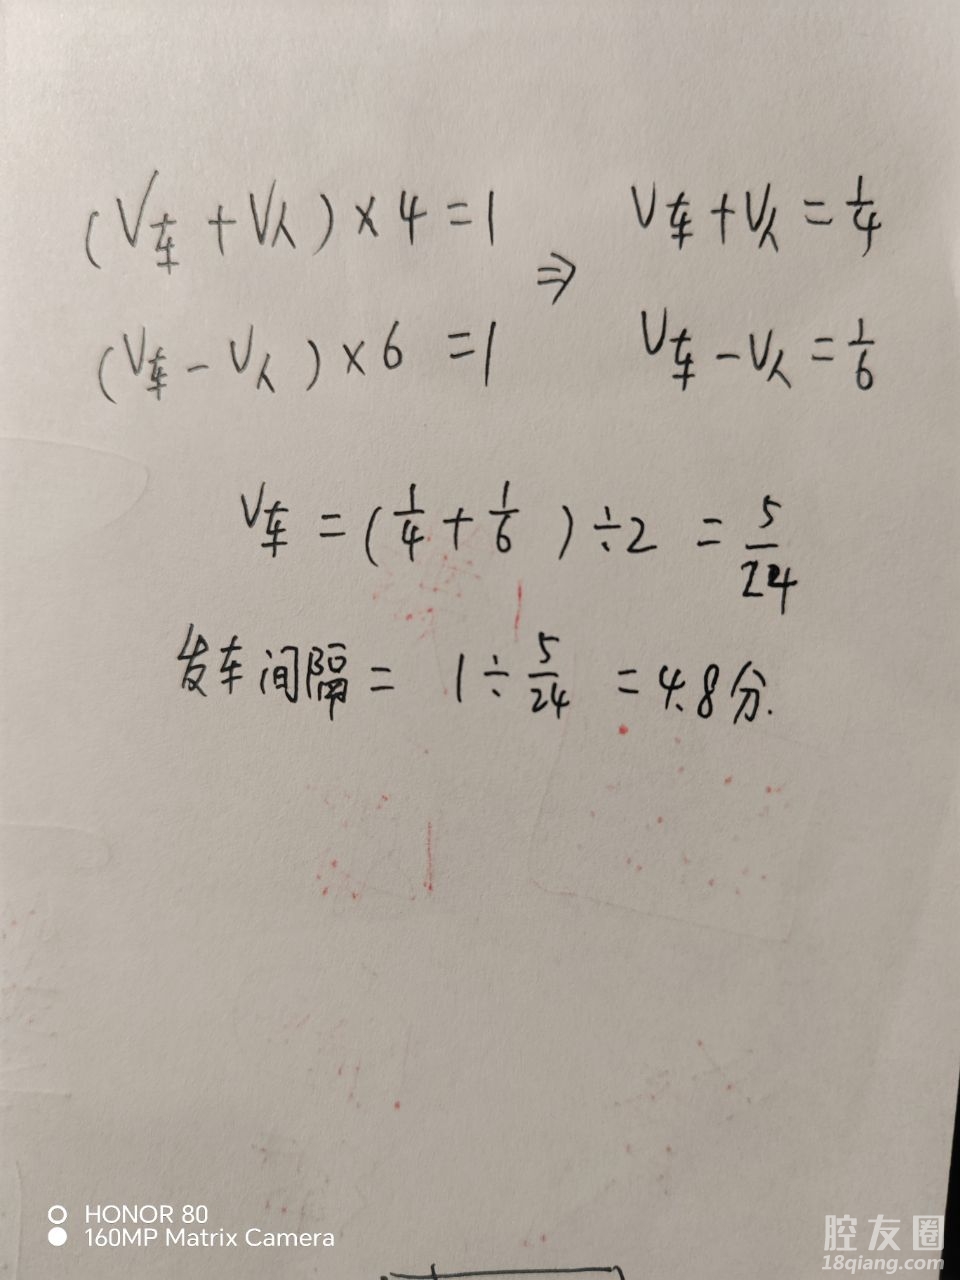 (V车+V人)×4=1 ⇒ V车+V人=1/4
(V车-V人)×6=1 V车-V人=1/6
V车=(1/4+1/6)÷2=5/24
发车间隔=1÷5/24=4.8分.
HONOR 80
160MP Matrix Camera
腔友圈
18qiang.com